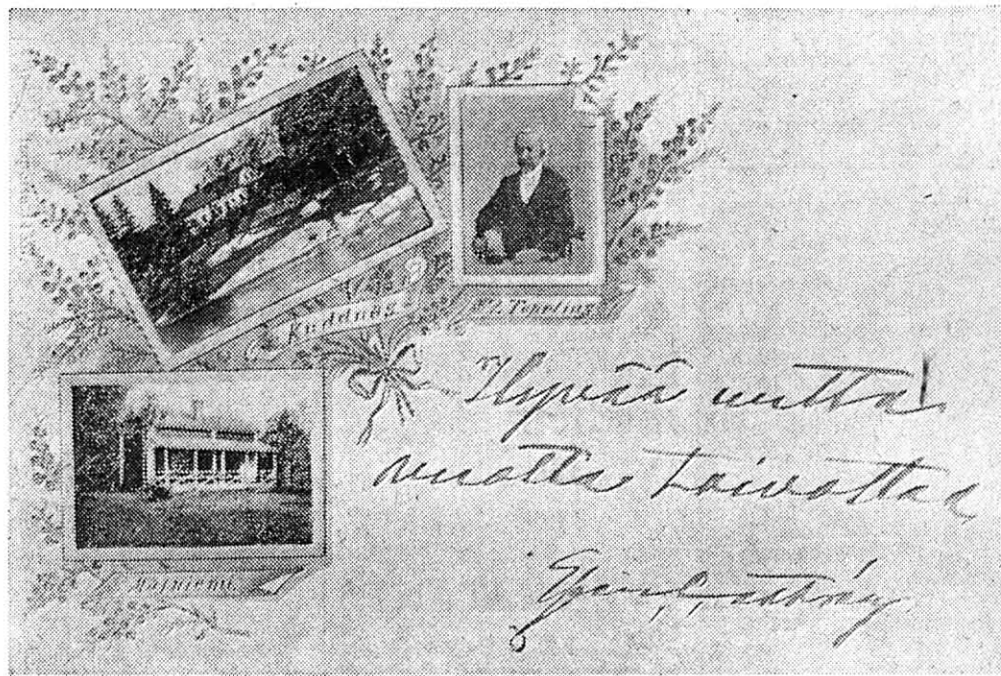 Kuddnäs
Z. Topelius
Majniemi
Hyvää uutta
vuotta toivottaa